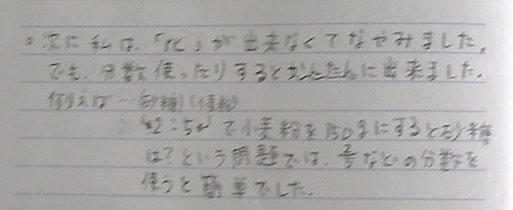 ○次に私は、「比」が出来なくてなやみました。
でも、分数使ったりするとかんたんに出来ました。
例えば…砂糖
2:5 で小麦粉を150gにすると砂糖
は?という問題では、などの分数を
使うと簡単でした。